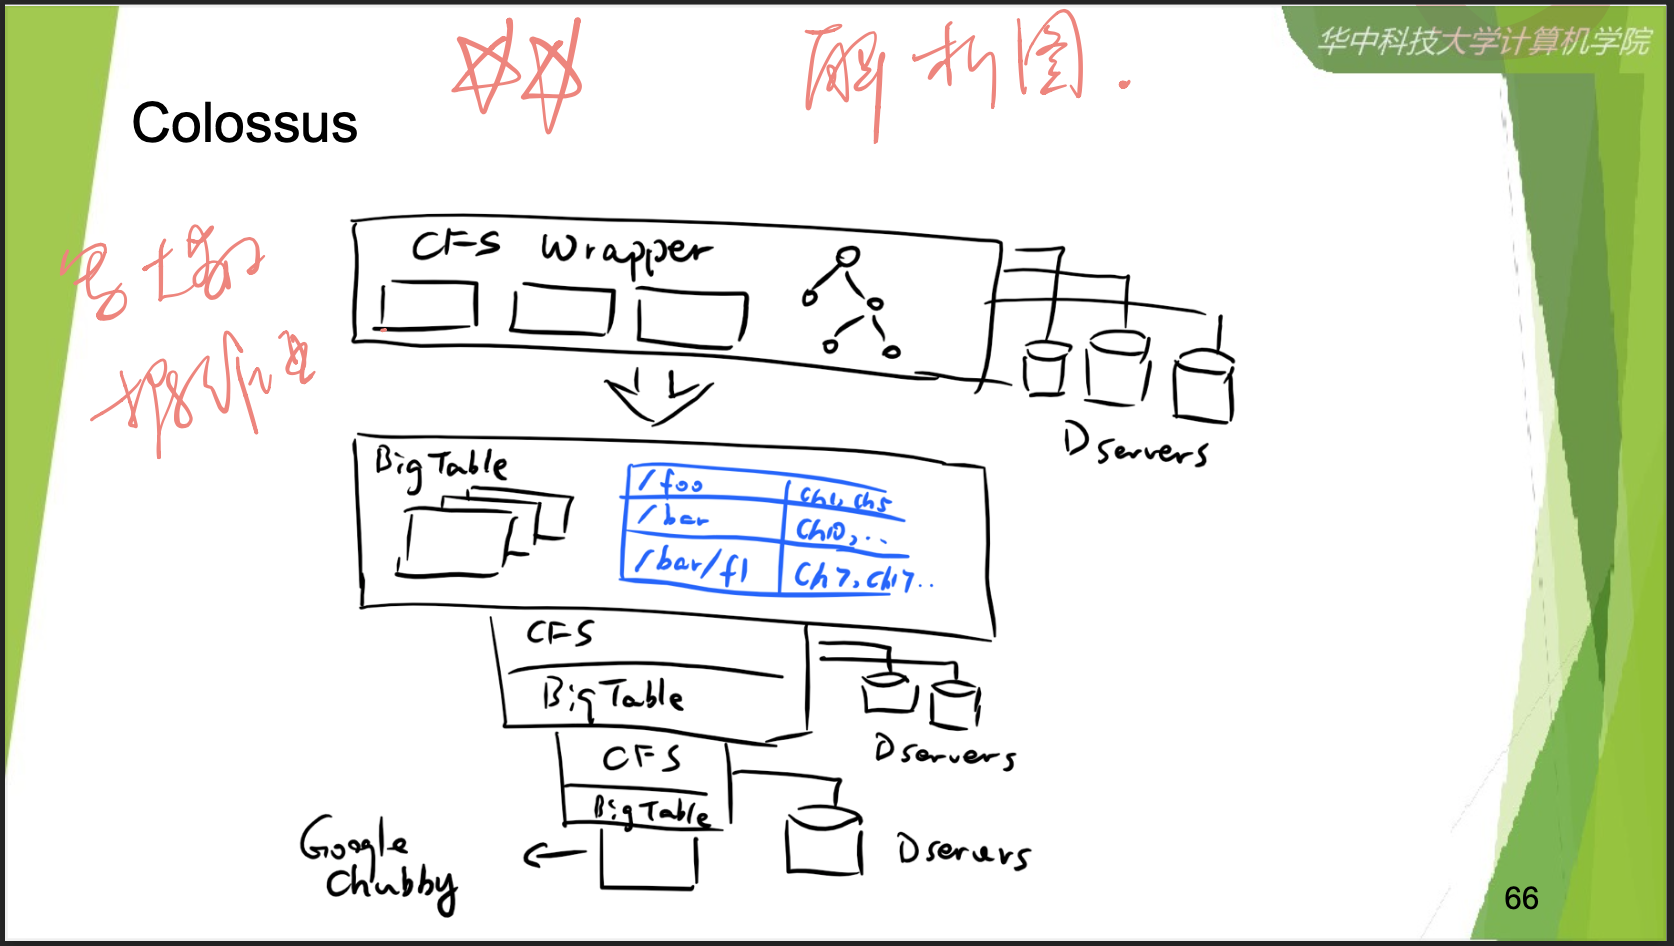 华中科技大学计算机学院
解析图.
Colossus
CFS Wrapper
Dservers
BigTable
/foo ch1, ch5
/bar ch10, ..
/bar/f1 ch7, ch17..
CFS
BigTable
Dservers
CFS
BigTable
Google
Chubby
Dservers
66